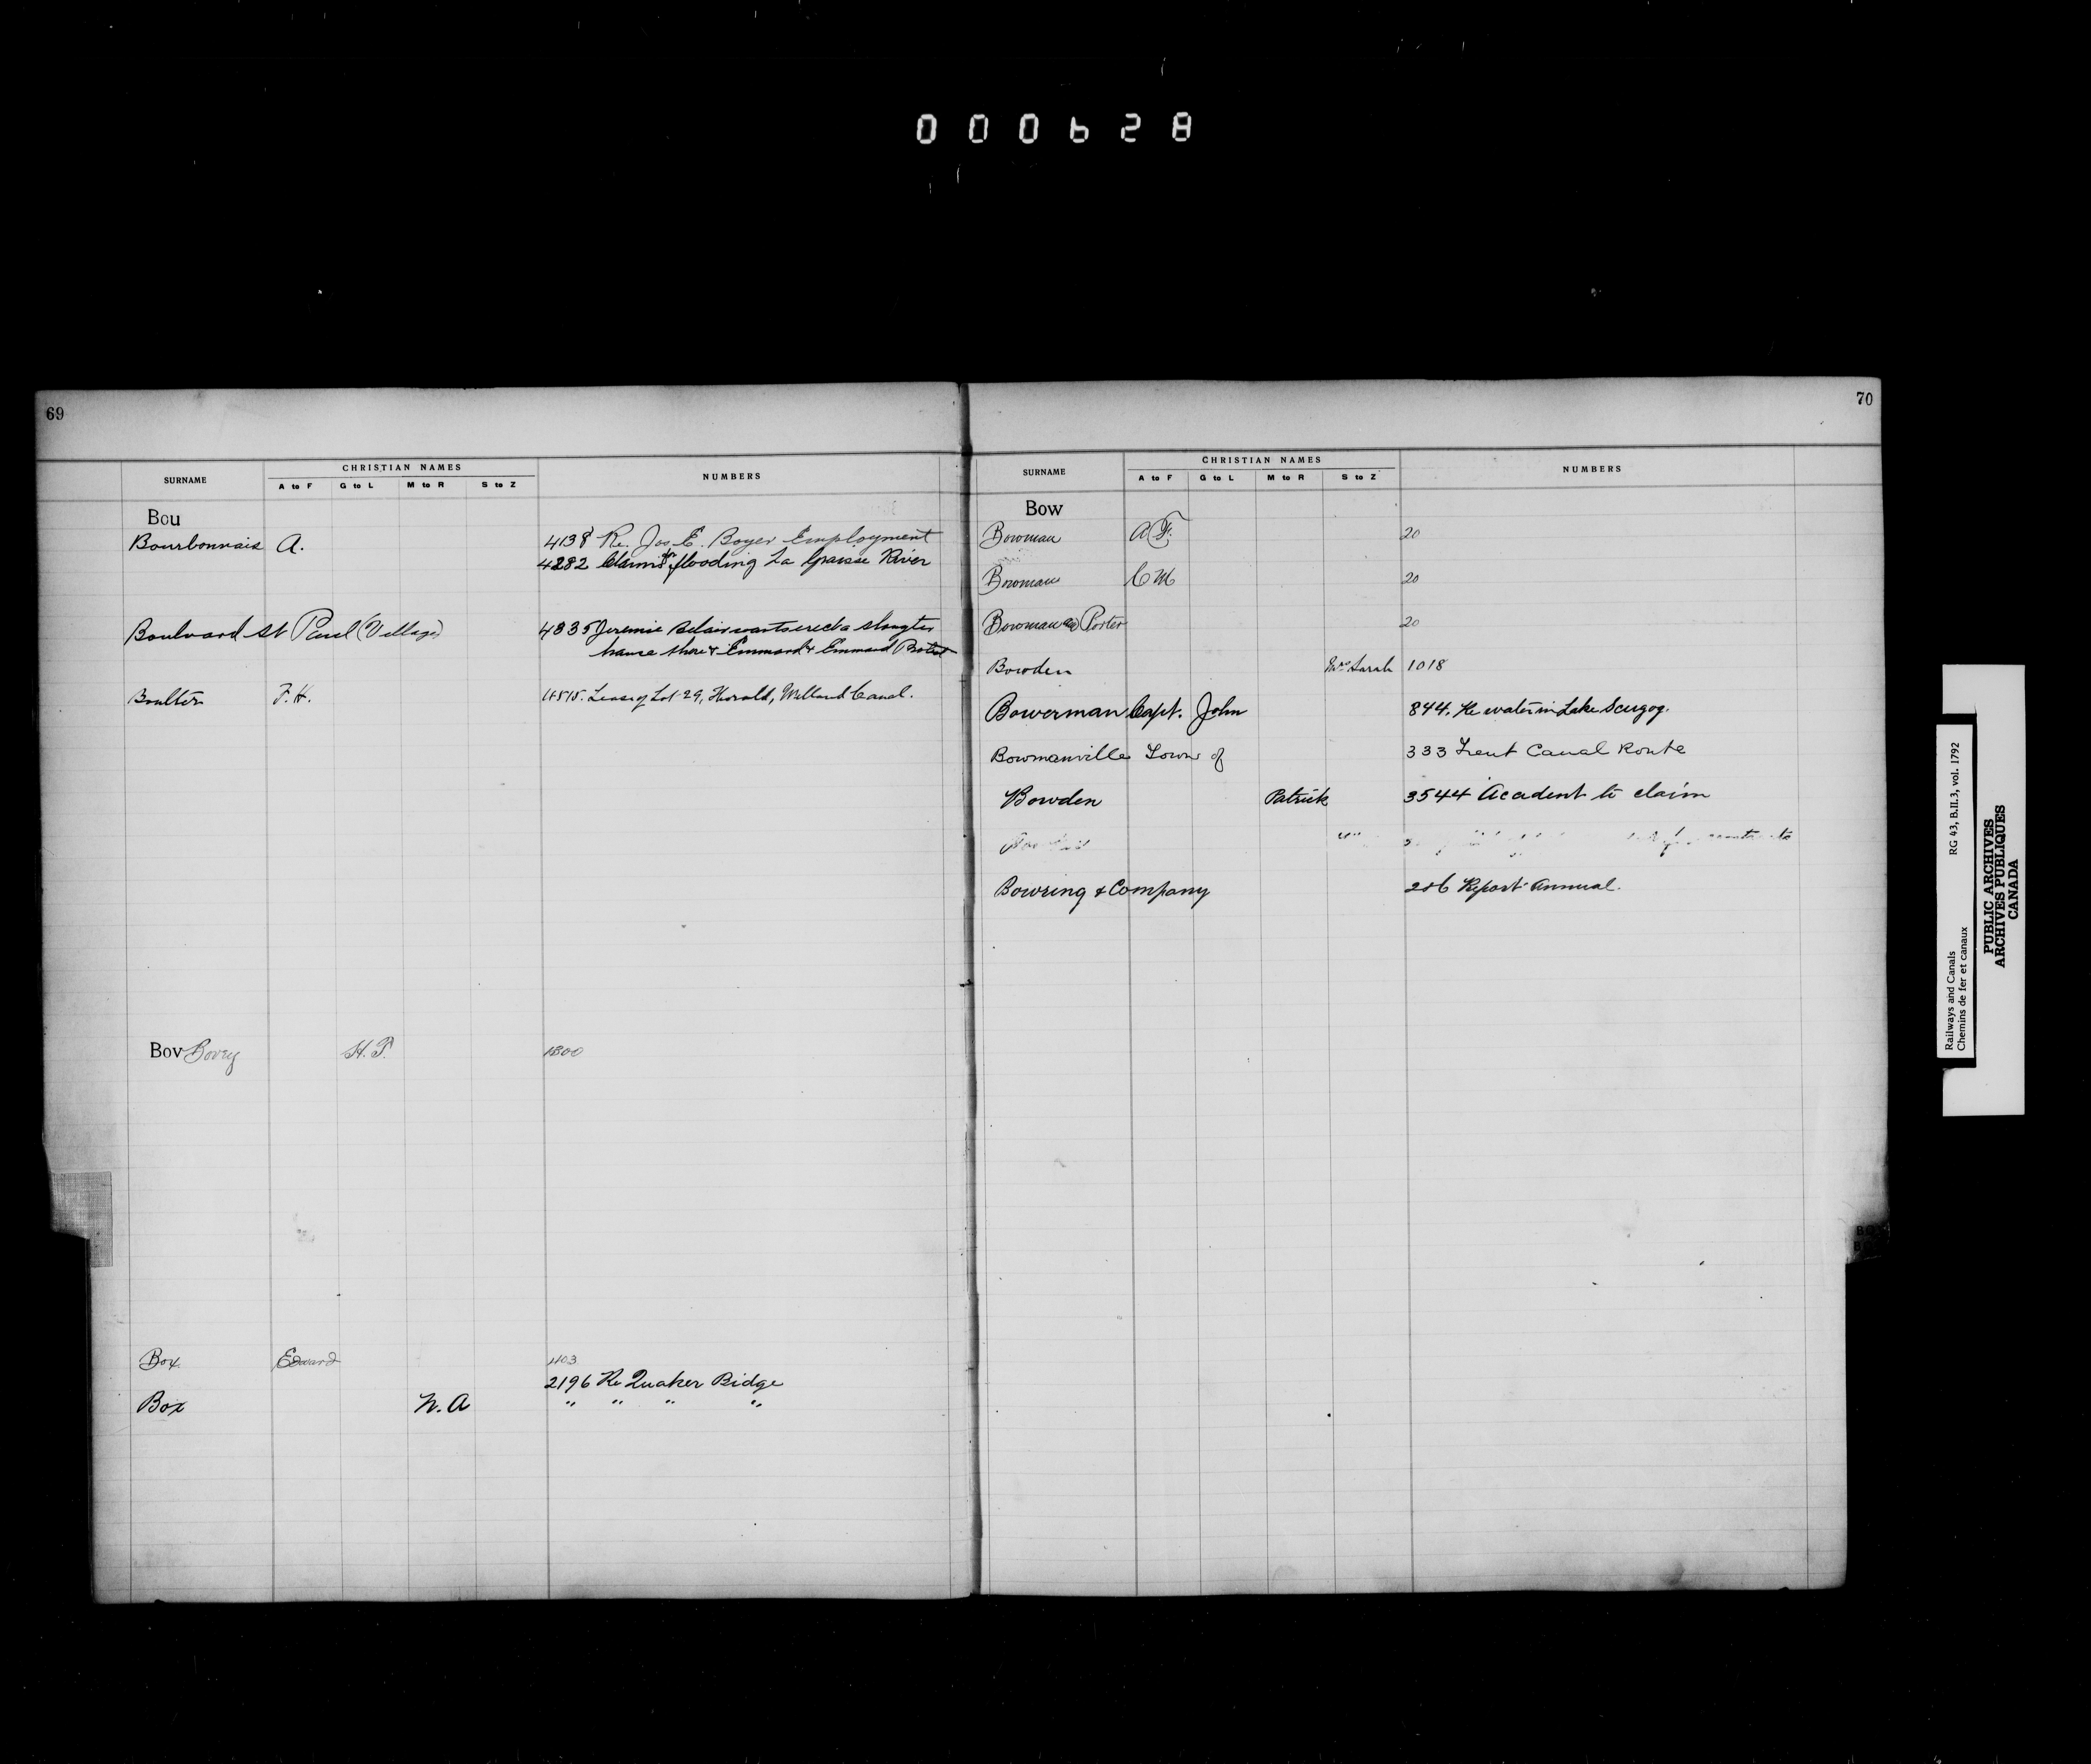 000628
69
SURNAME CHRISTIAN NAMES NUMBERS
A to F G to L M to R S to Z
Bou
Bourbonnais A. 4138 Re. Jos E. Boyer Employment
4282 Claims for flooding La Graisse River
Boulvard St Paul (Village) 4835 Jeremie Belair wants erect a slaugter
house there & Emmard & Emmard
Boulter F. H. Lease of Lot 29, Thorold, Welland Canal.
Bov Bovey H. T. 1800
Box Edward 1103
2196 Re Quaker Bidge
Box N. A " " " "
70
SURNAME CHRISTIAN NAMES NUMBERS
A to F G to L M to R S to Z
Bow
Bowman A F. 20
Bowman C M 20
Bowman & Porter 20
Bowden Mrs Sarah 1018
Bowerman Capt. John 844. Re water in Lake Scugog.
Bowmanville Town of 333 Trent Canal Route
Bowden Patrick 3544 Acadent to claim
Bowring & Company 206 Report Annual.
Railways and Canals RG 43, B.II.3, vol. 1792
Chemins de fer et canaux
PUBLIC ARCHIVES
ARCHIVES PUBLIQUES
CANADA